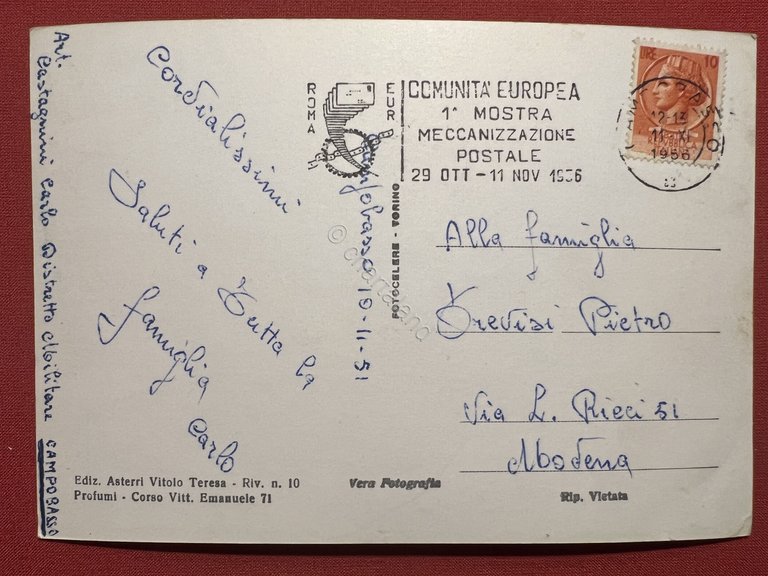 Art.
Castagnini Carlo Distretto Militare CAMPOBASSO
Cordialissimi
Saluti a Tutta la
famiglia
Carlo
Campobasso 10-11-51
ROMA
EUR
COMUNITA' EUROPEA
1ª MOSTRA
MECCANIZZAZIONE
POSTALE
29 OTT - 11 NOV 1956
LIRE 10
12-13
11 XI
1956
FOTOCELERE - TORINO
Alla famiglia
Trevisi Pietro
Via L. Ricci 51
Modena
Ediz. Asterri Vitolo Teresa - Riv. n. 10
Profumi - Corso Vitt. Emanuele 71
Vera Fotografia
Rip. Vietata
© chartaland